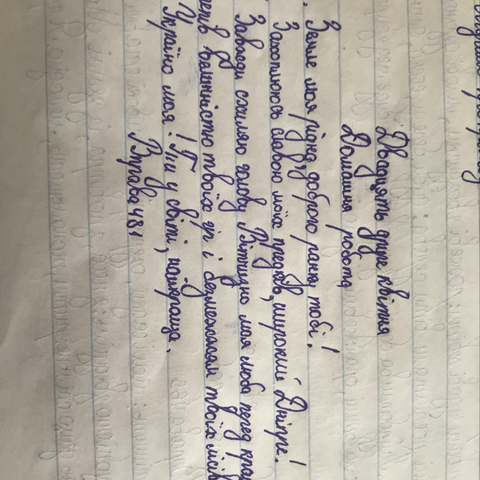 Двадцять друге квітня
Домашня робота
Земле моя рідна, доброго ранку тобі!
Захоплююсь славою моїх предків, широкий Дніпре!
Завжди схиляю голову Вітчизно моя люба перед кра
твоїх і твоїх лісів
Україно моя! Ти у світі, найкраща.
Вправа 481